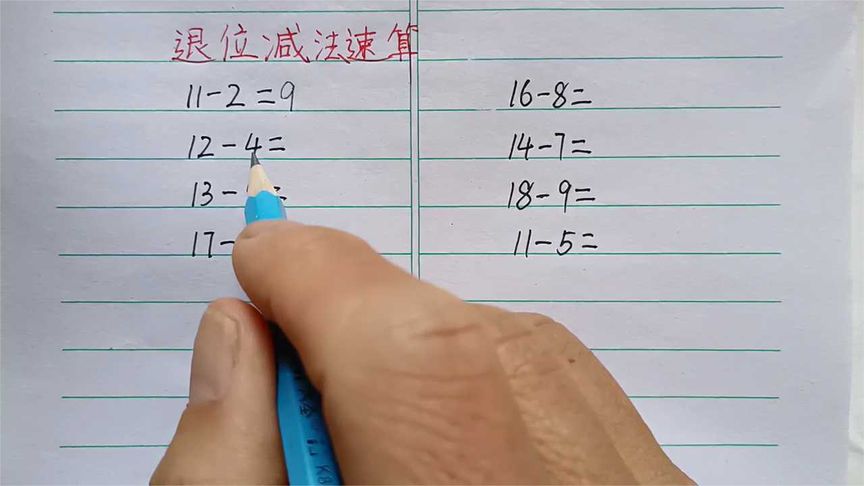 退位减法速算
11-2=9
12-4=
13- =
17-
16-8=
14-7=
18-9=
11-5=